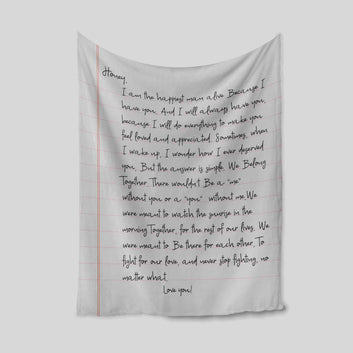 Honey,
I am the happiest man alive Because I
have you. And I will always have you,
because I will do everything to make you
feel loved and appreciated. Sometimes, when
I wake up, I wonder how I ever deserved
you. But the answer is simple. We Belong
Together. There wouldn't Be a "me"
without you or a "you" without me. We
were meant to watch the sunrise in the
morning Together, for the rest of our lives. We
were meant to Be there for each other. To
fight for our love, and never stop fighting, no
matter what.
Love you!